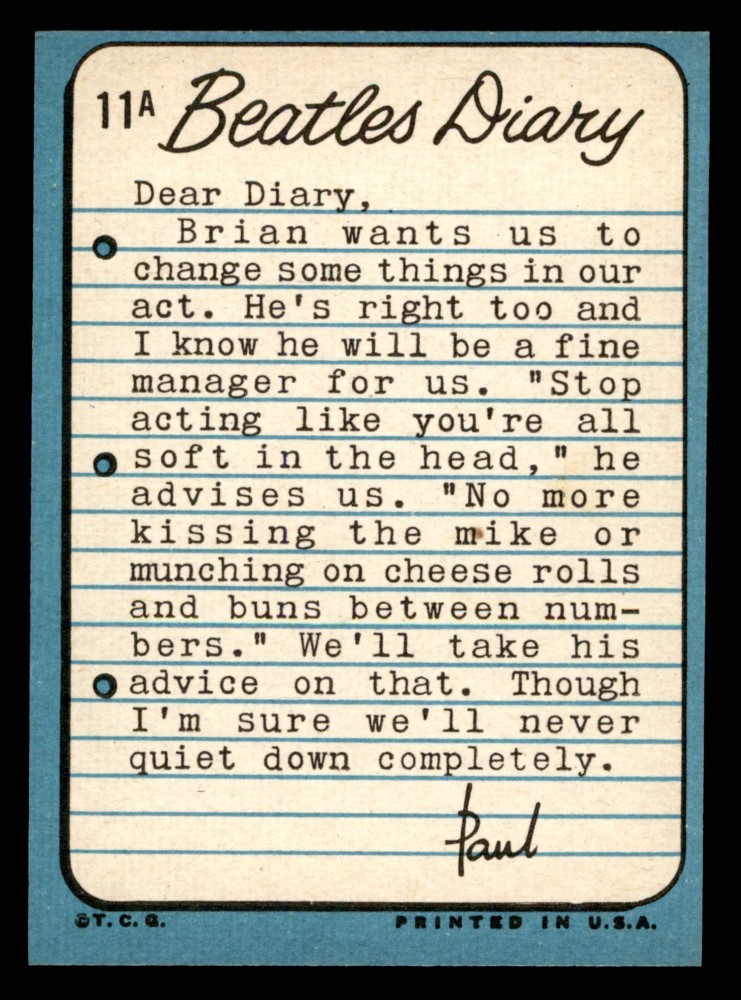 11A Beatles Diary
Dear Diary,
Brian wants us to
change some things in our
act. He's right too and
I know he will be a fine
manager for us. "Stop
acting like you're all
soft in the head," he
advises us. "No more
kissing the mike or
munching on cheese rolls
and buns between num-
bers." We'll take his
advice on that. Though
I'm sure we'll never
quiet down completely.
Paul
©T.C.G. PRINTED IN U.S.A.